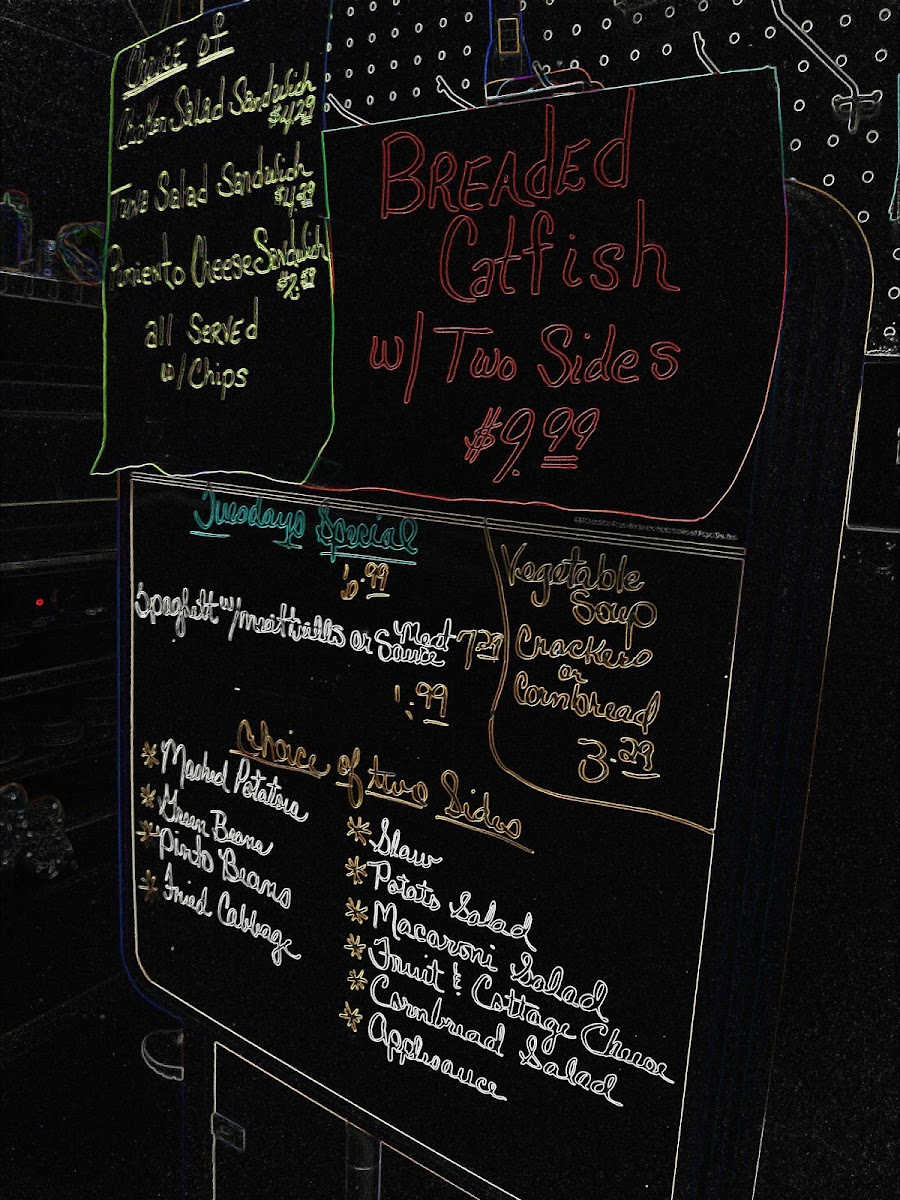 Choice of
Chicken Salad Sandwich
$4.29
Tuna Salad Sandwich
$4.29
Pimiento Cheese Sandwich
all Served
w/Chips
BREAded
Catfish
w/Two Sides
$9.99
Tuesdays Special
6.99
Spaghetti w/meatballs or Meat Sauce 7.29
1.99
Vegetable
Soup
Crackers
or
Cornbread
3.29
Choice of two Sides
* Mashed Potatoes
* Green Beans
* Pinto Beans
* Fried Cabbage
* Slaw
* Potato Salad
* Macaroni Salad
* Fruit & Cottage Cheese
* Cornbread Salad
* Applesauce